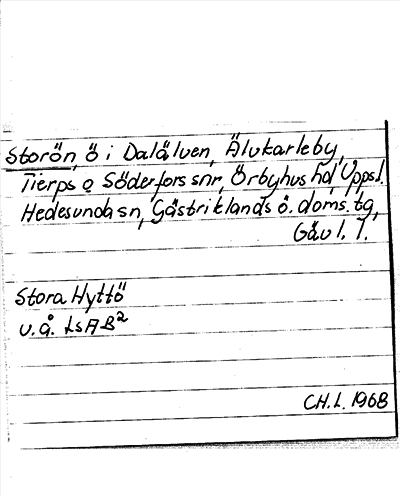 Storön, ö i Dalälven, Älvkarleby,
Tierps o Söderfors snr, Örbyhus hd, Upps l.
Hedesunda sn, Gästriklands ö. doms. tg,
Gävl. l.
Stora Hyttö
u.å. LSA B²
C.H.L. 1968